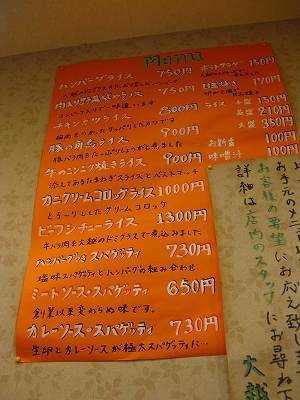 Menu
ハンバーグライス 750円
肉入り野菜炒めライス 750円
チキンカツライス 800円
胸肉をつかったサッパリしたカツです
豚の角煮ライス 900円
豚バラ肉をたっぷりしょうがと煮ました
牛のニンニク焼きライス 900円
添えてあるたまねぎスライスとベストマッチ
カニクリームコロッケライス 1000円
とろ〜りとしたクリームコロッケ
ビーフシチューライス 1300円
牛バラ肉を大越のドミグラスで煮込みました
ハンバーグ&スパゲッティ 730円
塩味スパゲッティとハンバーグの組み合わせ
ミートソース・スパゲッティ 650円
創業以来変わらぬ味です。
カレーソース・スパゲッティ 730円
生卵とカレーソースが極太スパゲッティに…
ポークカツ 150円
目玉焼き 170円
ライス 小盛 150円
並盛 210円
大盛 350円
お新香 100円
味噌汁 100円
お手元のメニュー
お客様の希望にお応え致し
詳細は店内のスタッフにお尋ね下
大越